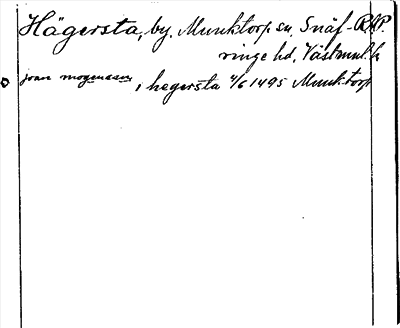 Hägersta, by. Munktorp sn. Snäf- RAP.
ringe hd, Västmnl. l.
joan mogensson, i hegersta 4/6 1495 Munktorp